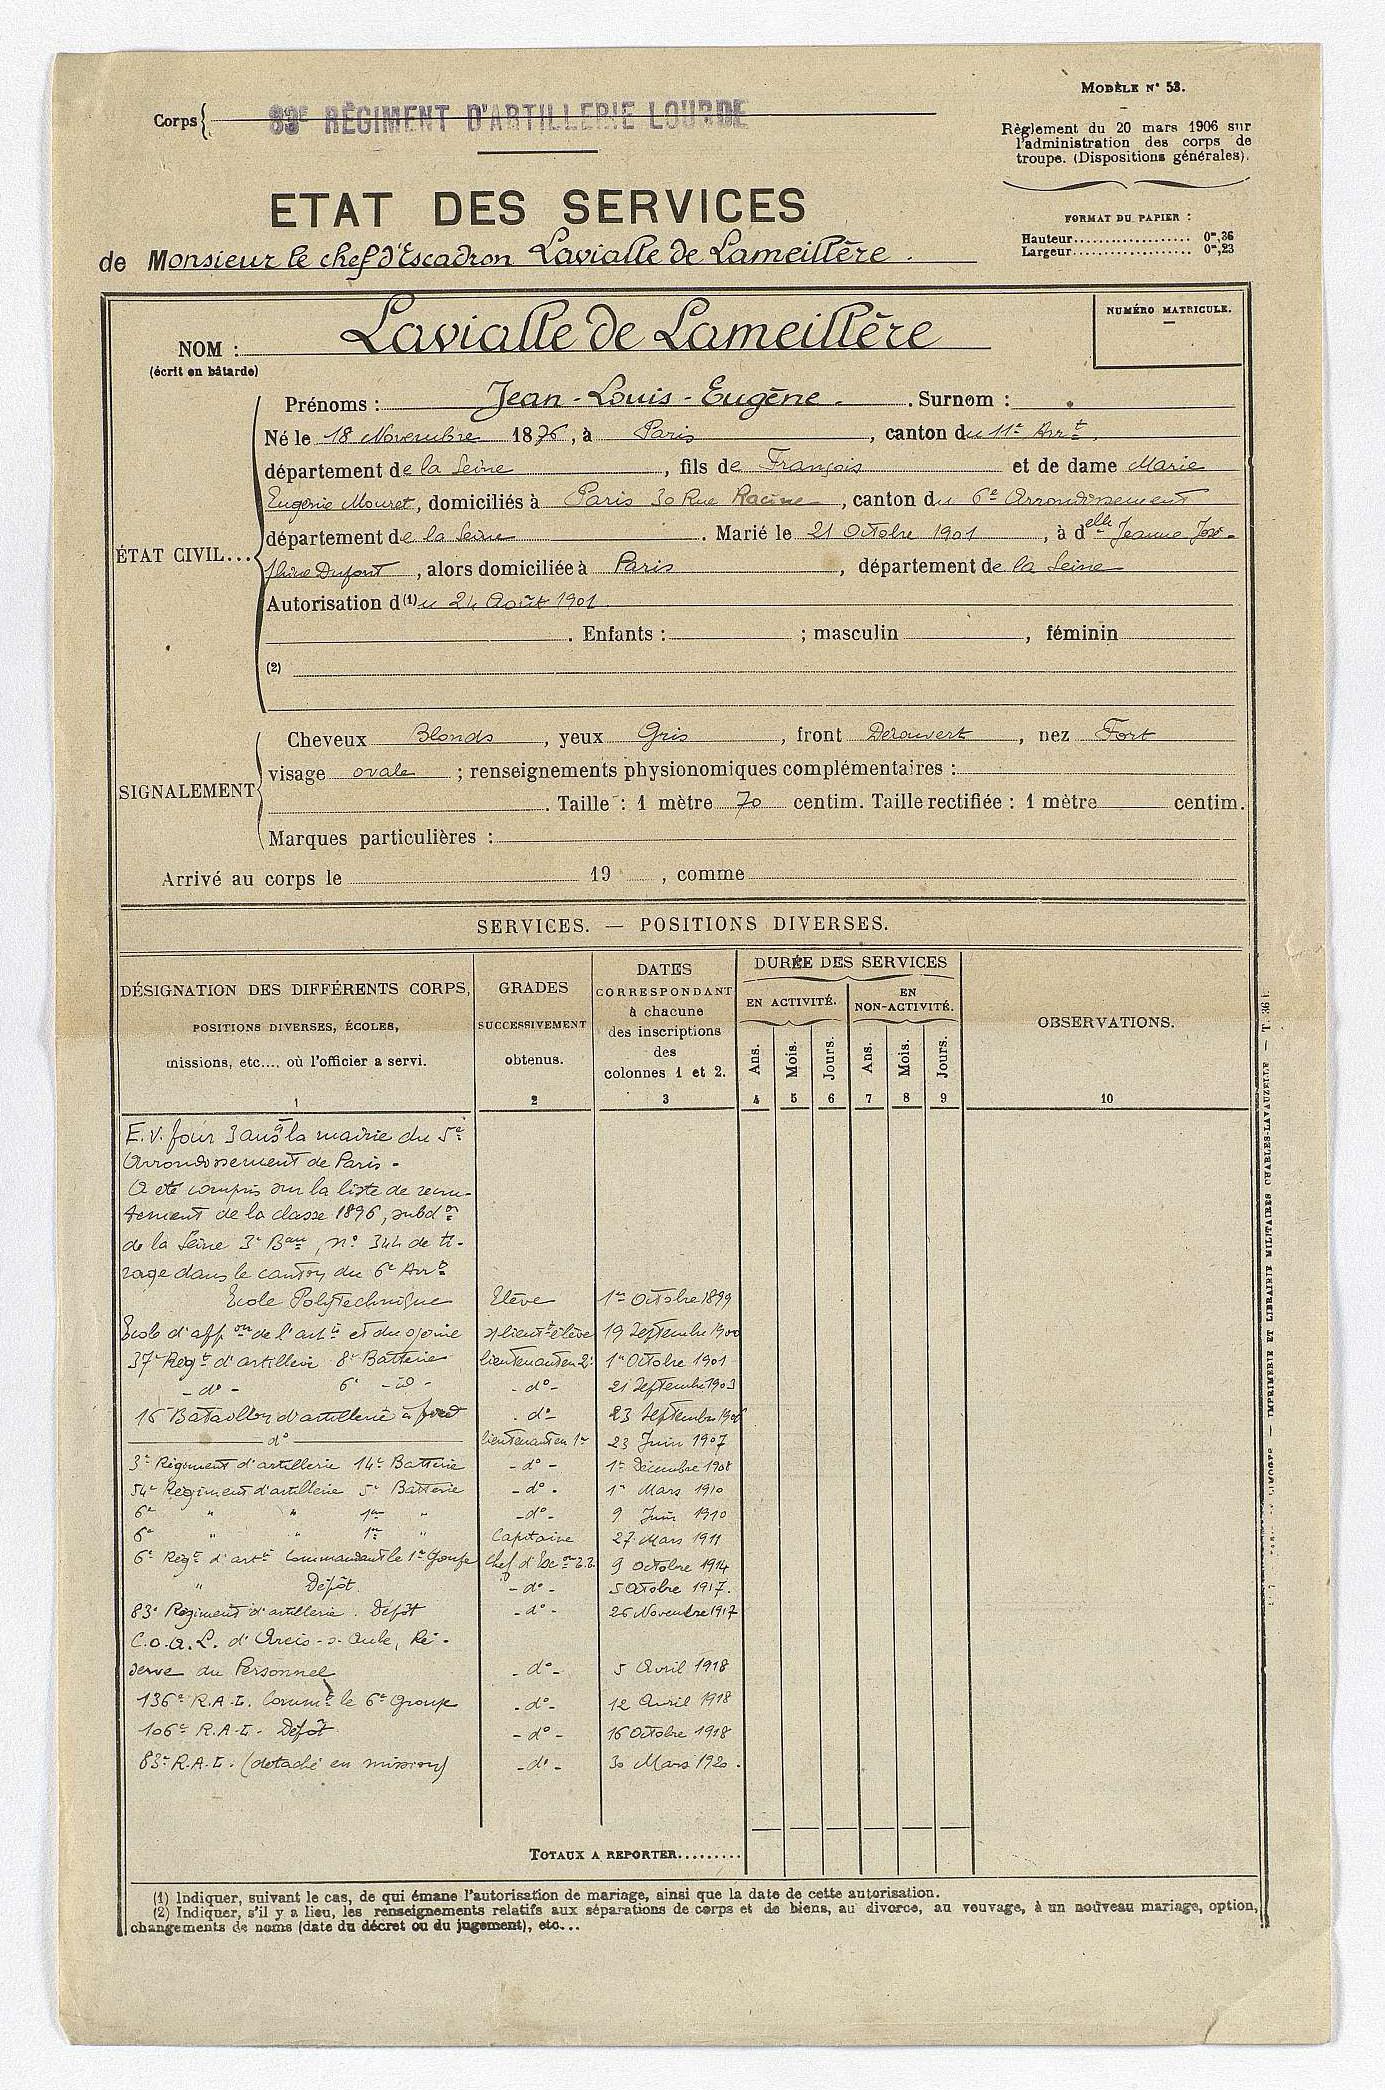 MODÈLE N° 53.
Corps 83E RÉGIMENT D'ARTILLERIE LOURDE
Règlement du 20 mars 1906 sur
l'administration des corps de
troupe. (Dispositions générales).
ETAT DES SERVICES
FORMAT DU PAPIER :
Hauteur................... 0m,36
Largeur................... 0m,23
de Monsieur le chef d'Escadron Lavialle de Lameillère.
NUMÉRO MATRICULE.
NOM : Lavialle de Lameillère
(écrit en bâtarde)
Prénoms : Jean-Louis-Eugène. Surnom :
Né le 18 Novembre 1876, à Paris, canton du 11e Arrt.
département de la Seine, fils de François et de dame Marie
Eugénie Mouret, domiciliés à Paris 30 Rue Racine, canton du 6e Arrondissement
département de la Seine. Marié le 21 Octobre 1901, à delle Jeanne José-
phine Dupont, alors domiciliée à Paris, département de la Seine
ÉTAT CIVIL...
Autorisation d(1)u 24 Août 1901
. Enfants : ; masculin , féminin
(2)
Cheveux Blonds, yeux Gris, front Découvert, nez Fort
visage ovale ; renseignements physionomiques complémentaires :
SIGNALEMENT
. Taille : 1 mètre 70 centim. Taille rectifiée : 1 mètre centim.
Marques particulières :
Arrivé au corps le 19 , comme
SERVICES. — POSITIONS DIVERSES.
DÉSIGNATION DES DIFFÉRENTS CORPS,
POSITIONS DIVERSES, ÉCOLES,
missions, etc.... où l'officier a servi.
1
GRADES
SUCCESSIVEMENT
obtenus.
2
DATES
CORRESPONDANT
à chacune
des inscriptions
des
colonnes 1 et 2.
3
DURÉE DES SERVICES
EN ACTIVITÉ.
EN
NON-ACTIVITÉ.
Ans. Mois. Jours. Ans. Mois. Jours.
4 5 6 7 8 9
OBSERVATIONS.
10
E.V. pour 3 ans à la mairie du 5e
Arrondissement de Paris -
A été compris sur la liste de recru-
tement de la classe 1896, subdon
de la Seine 3e Bau, n° 344 de ti-
rage dans le canton du 6e Arrt
Ecole Polytechnique Elève 1er Octobre 1899
Ecole d'appon de l'artie et du génie s/lieutt élève 19 Septembre 1900
37e Régt d'artillerie 8e Batterie lieutenant en 2e 1er Octobre 1901
- do - 6e - id - - do - 21 Septembre 1903
16e Bataillon d'artillerie à pied - do - 23 Septembre
do lieutenant en 1er 23 Juin 1907
3e Régiment d'artillerie 14e Batterie - do - 1er Décembre 1908
54e Régiment d'artillerie 5e Batterie - do - 1er Mars 1910
6e " " 1re " - do - 9 Juin 1910
6e " " 1re " Capitaine 27 Mars 1911
6e Régt d'artie Commandant le 1er Groupe chef d'Escon T.T. 9 Octobre 1914
" Dépôt - do - 5 Octobre 1917.
83e Régiment d'artillerie. Dépôt - do - 26 Novembre 1917
C.O.A.L. d'Arcis-s-Aube, Ré-
serve du Personnel - do - 5 Avril 1918
136e R.A.L. Commt le 6e Groupe - do - 12 Avril 1918
106e R.A.L. Dépôt - do - 16 Octobre 1918
83e R.A.L. (détaché en mission) - do - 30 Mars 1920.
TOTAUX A REPORTER.........
(1) Indiquer, suivant le cas, de qui émane l'autorisation de mariage, ainsi que la date de cette autorisation.
(2) Indiquer, s'il y a lieu, les renseignements relatifs aux séparations de corps et de biens, au divorce, au veuvage, à un nouveau mariage, option,
changements de noms (date du décret ou du jugement), etc...
LIMOGES — IMPRIMERIE ET LIBRAIRIE MILITAIRES CHARLES-LAVAUZELLE — T. 36